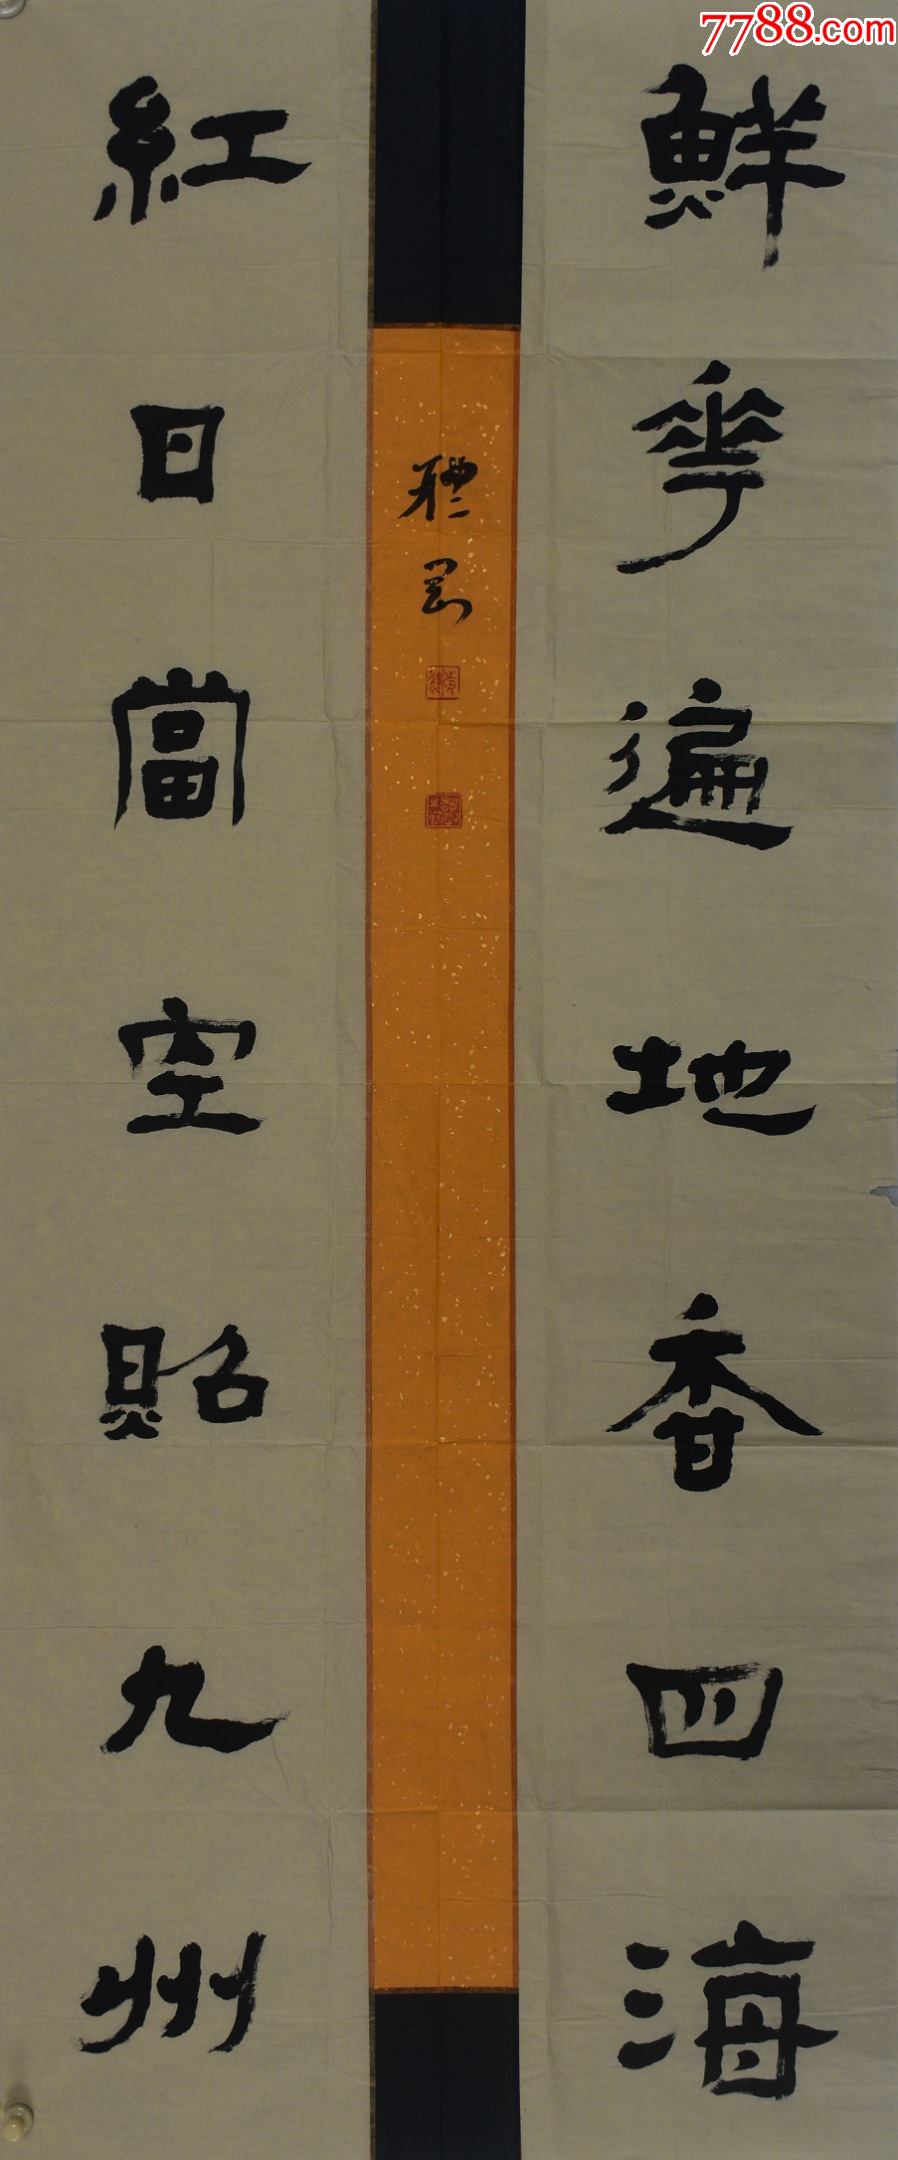 7788.com
鮮花遍地香四海
紅日當空照九州